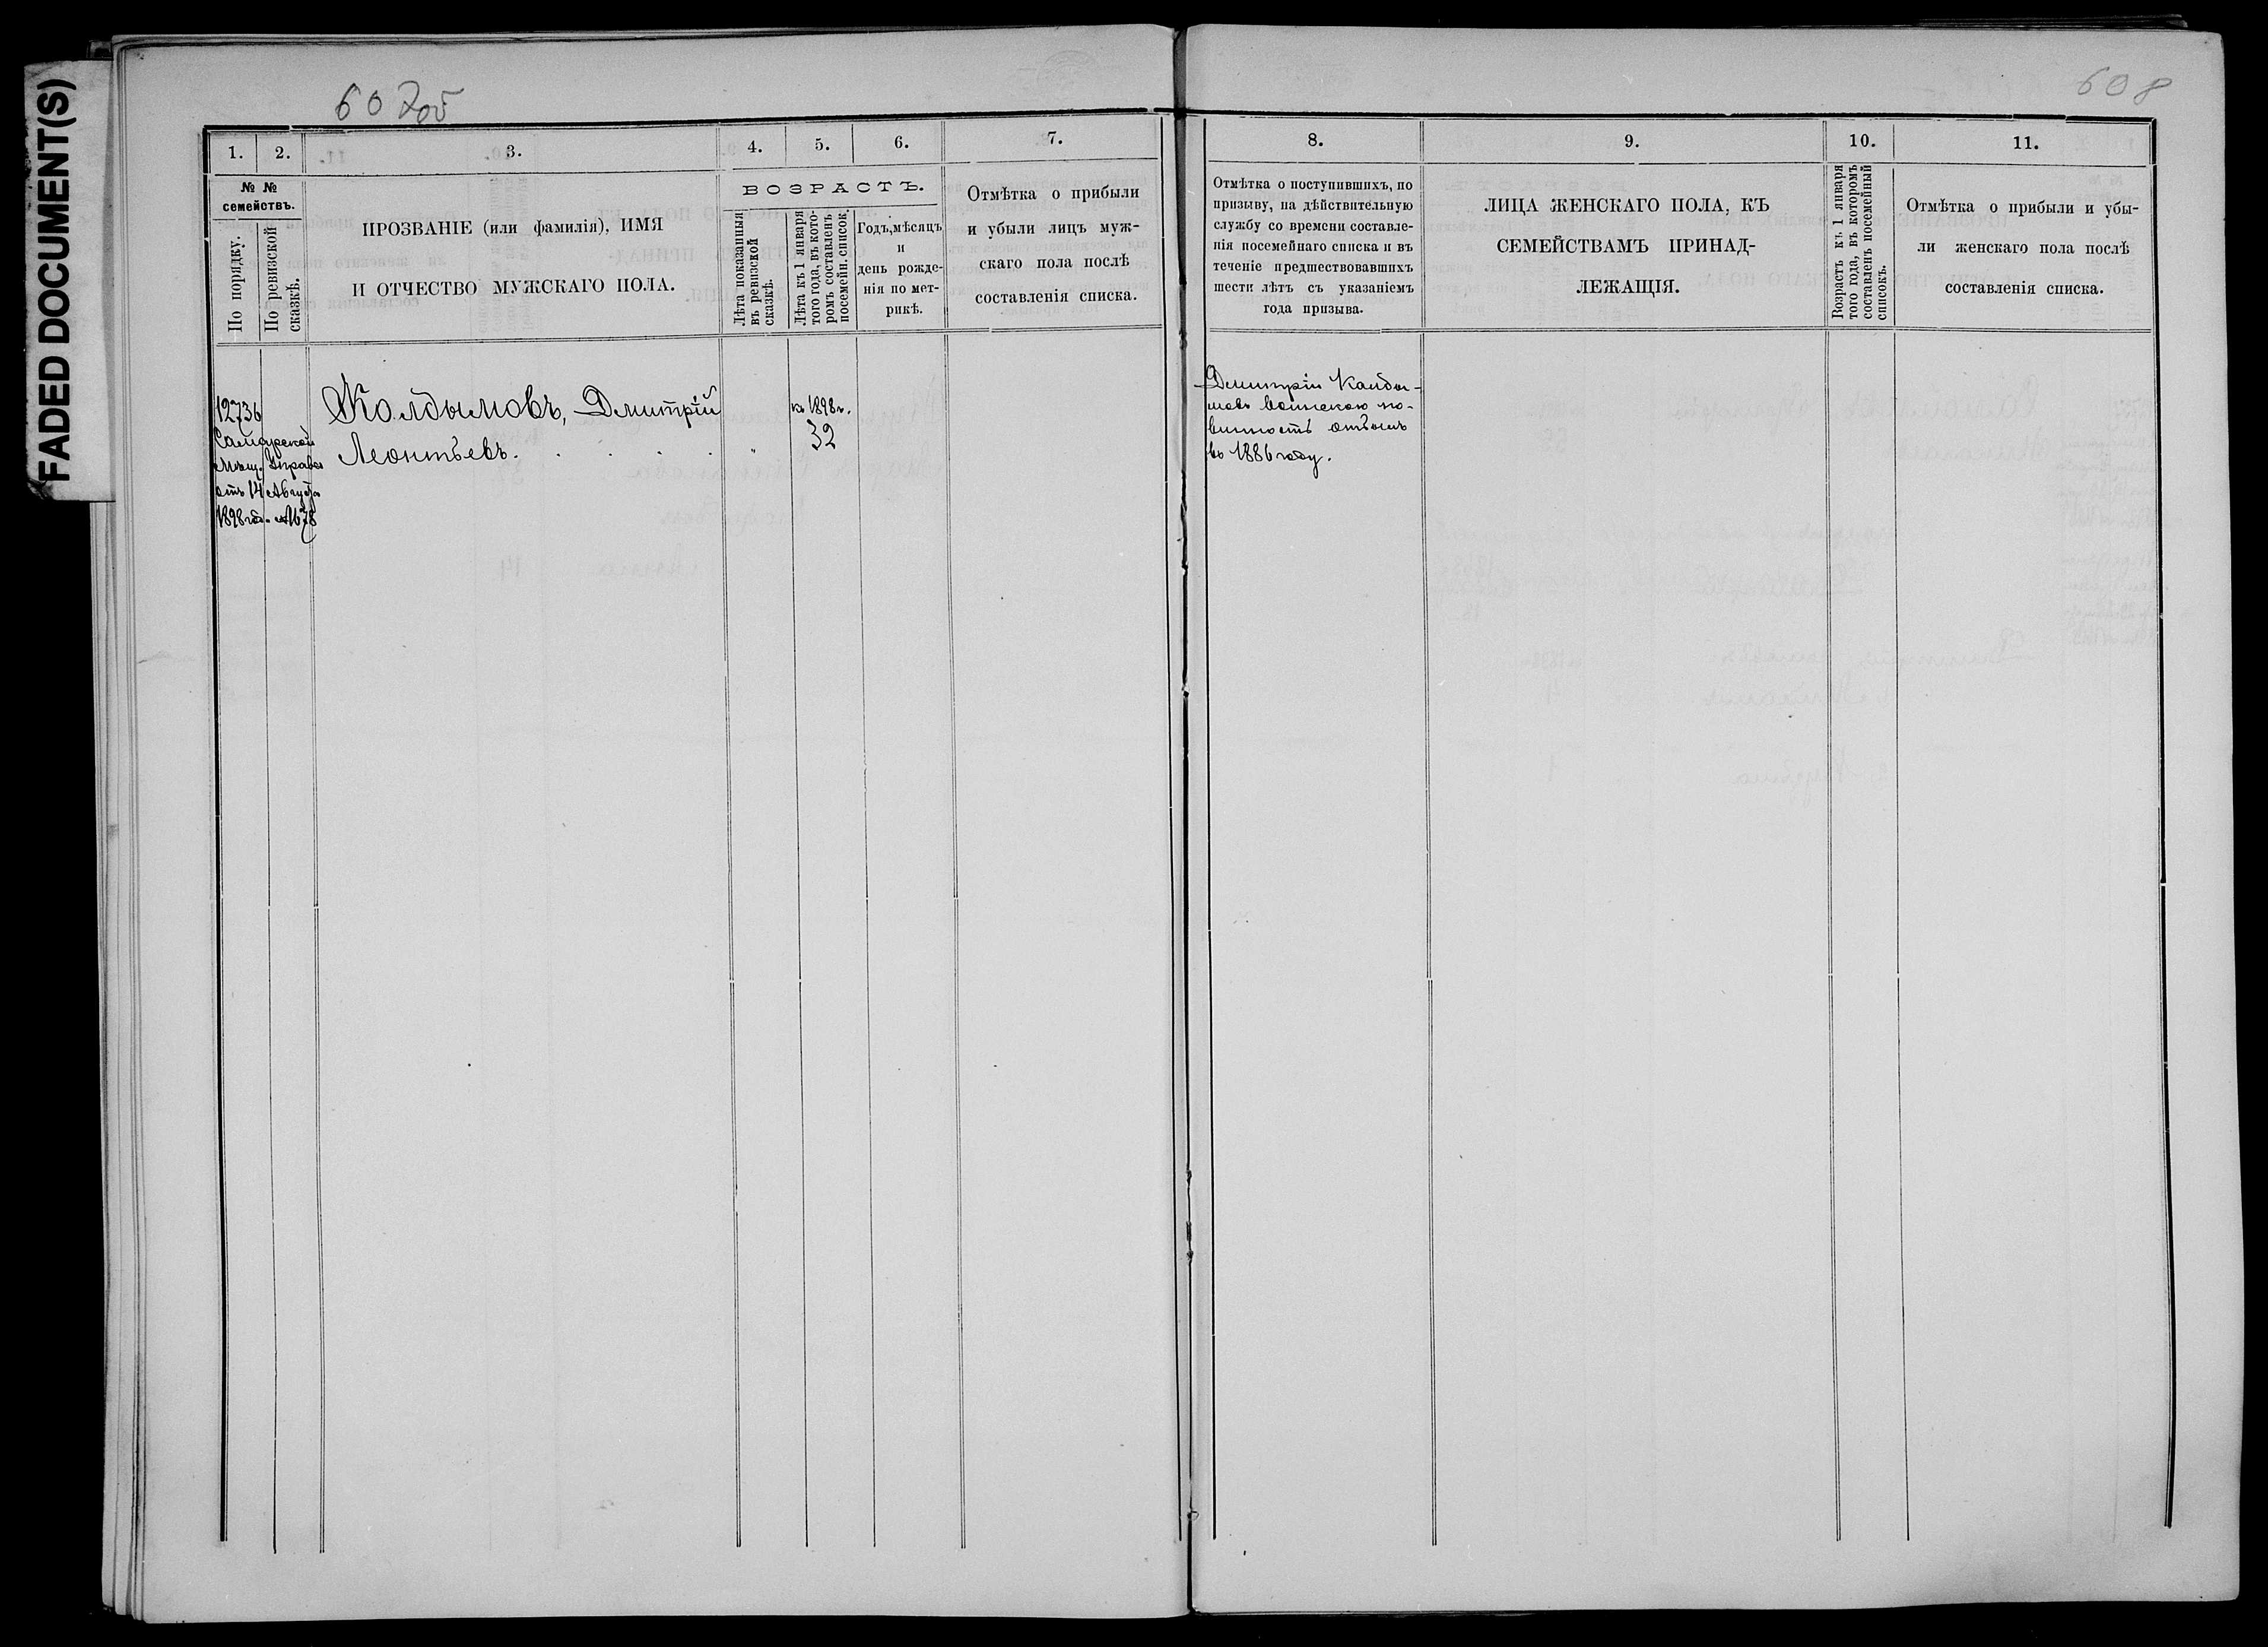 FADED DOCUMENT(S)
607об
608
1. 2. 3. 4. 5. 6. 7.
№ №
семействъ.
По порядку.
По ревизской
сказкѣ.
ПРОЗВАНІЕ (или фамилія), ИМЯ
И ОТЧЕСТВО МУЖСКАГО ПОЛА.
ВОЗРАСТЪ.
Лѣта показанныя
въ ревизской
сказкѣ.
Лѣта къ 1 января
того года, въ кото-
ромъ составленъ
посемейн. список.
Годъ, мѣсяцъ
и
день рожде-
нія по мет-
рикѣ.
Отмѣтка о прибыли
и убыли лицъ муж-
скаго пола послѣ
составленія списка.
12736
Самарской
Мѣщ. Управы
отъ 14 Августа
1898 год. № 78
Колдымовъ, Дмитрій
Леонтьевъ. . . . . "
къ 1898 г.
32
8. 9. 10. 11.
Отмѣтка о поступившихъ, по
призыву, на дѣйствительную
службу со времени составле-
нія посемейнаго списка и въ
теченіе предшествовавшихъ
шести лѣтъ съ указаніемъ
года призыва.
ЛИЦА ЖЕНСКАГО ПОЛА, КЪ
СЕМЕЙСТВАМЪ ПРИНАД-
ЛЕЖАЩІЯ.
Возрастъ къ 1 января
того года, въ которомъ
составленъ посемейный
списокъ.
Отмѣтка о прибыли и убы-
ли женскаго пола послѣ
составленія списка.
Дмитрій Колды-
мовъ воинскою по-
винность отбылъ
въ 1886 году.